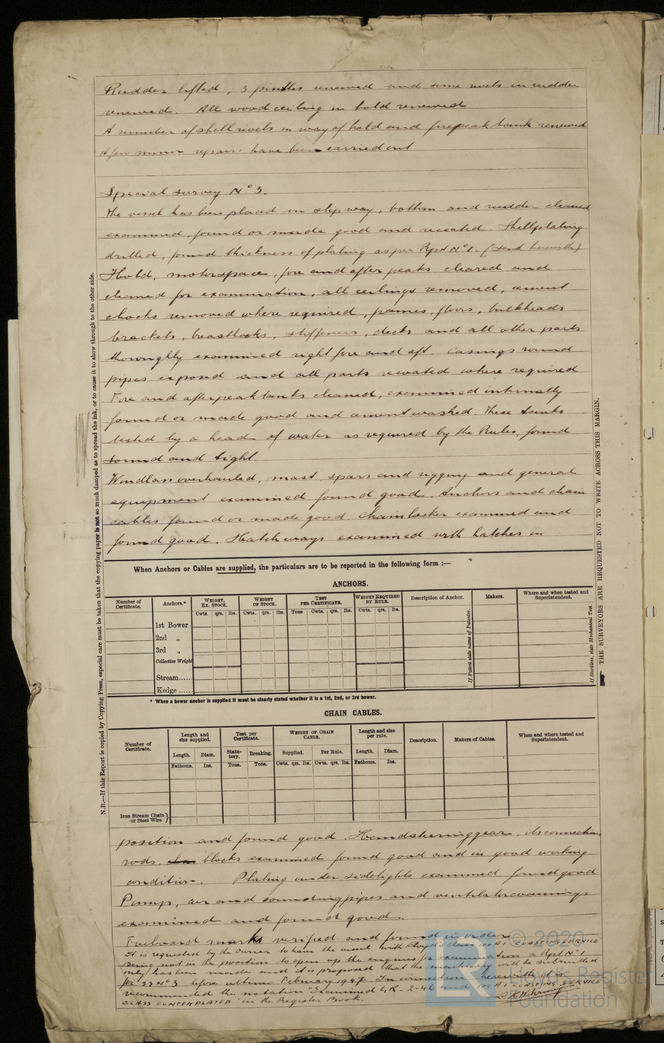 Rudder lifted, 3 pintles renewed and some rivets in rudder
renewed. All wood ceiling in hold renewed
A number of shell rivets in way of hold and forepeak tank renewed
A few minor repairs have been carried out
Special Survey No 3.
The vessel has been placed on slipway, bottom and rudder cleaned
examined, found or made good and recoated. Shellplating
drilled, found thickness of plating as per Rpt No 1. (sent herewith)
Hold, motorspace, fore and after peaks cleared and
cleaned for examination, all ceilings removed, cement
chocks removed where required, frames, floors, bulkheads
brackets, breasthooks, stiffeners, decks and all other parts
thoroughly examined right fore and aft. Casings round
pipes exposed and all parts recoated where required
Fore and afterpeak tanks cleaned, examined internally
found or made good and cementwashed. These tanks
tested by a head of water as required by the Rules, found
sound and tight.
Windlass overhauled, mast, spars and rigging and general
equipment examined found good. Anchors and chain
cables found or made good. Chainlocker examined and
found good. Hatchways examined with hatches in
When Anchors or Cables are supplied, the particulars are to be reported in the following form :—
ANCHORS.
Number of Certificate. Anchors.* WEIGHT, EX. STOCK. WEIGHT OF STOCK. TEST PER CERTIFICATE. WEIGHT REQUIRED BY RULE. Description of Anchor. Makers. Where and when tested and Superintendent.
Cwts. qrs. lbs. Cwts. qrs. lbs. Tons Cwt. qrs. lbs. Cwts. qrs. lbs.
1st Bower
2nd „
3rd „
Collective Weight
Stream.....
Kedge ....
If Patent state name of Patentee.
If Stockless, state Mechanical Test.
* When a bower anchor is supplied it must be clearly stated whether it is a 1st, 2nd, or 3rd bower.
CHAIN CABLES.
Number of Certificate. Length and size supplied. Test per Certificate. WEIGHT OF CHAIN CABLE. Length and size per rule. Description. Makers of Cables. When and where tested and Superintendent.
Length. Diam. Statutory. Breaking. Supplied. Per Rule. Length. Diam.
Fathoms. Ins. Tons. Tons. Cwts. qrs. lbs. Cwts. qrs. lbs. Fathoms. Ins.
Iron Stream Chain or Steel Wire
position and found good. Handsteeringgear, its connecting
rods, blocks examined found good and in good working
condition. Plating under sidelights examined found good
Pumps, air and sounding pipes and ventilatorcoamings
examined and found good.
Freeboard marks verified and found in order
It is requested by the owner to have the
being not in the position to open up the engines for examination a Rpt No 1
only has been made and it is proposed that the
for SS No 3 before within February 1947. In connection herewith it is
recommended the notation "Examined L.R. 2-46 and for COASTING SERVICE
CLASS CONTEMPLATED" in the Register Book.
N.B.—If this Report is copied by Copying Press, especial care must be taken that the copying paper is not so much damped as to spread the ink, or to cause it to show through to the other side.
THE SURVEYORS ARE REQUESTED NOT TO WRITE ACROSS THIS MARGIN.
© 2020
Lloyd's Register
Foundation